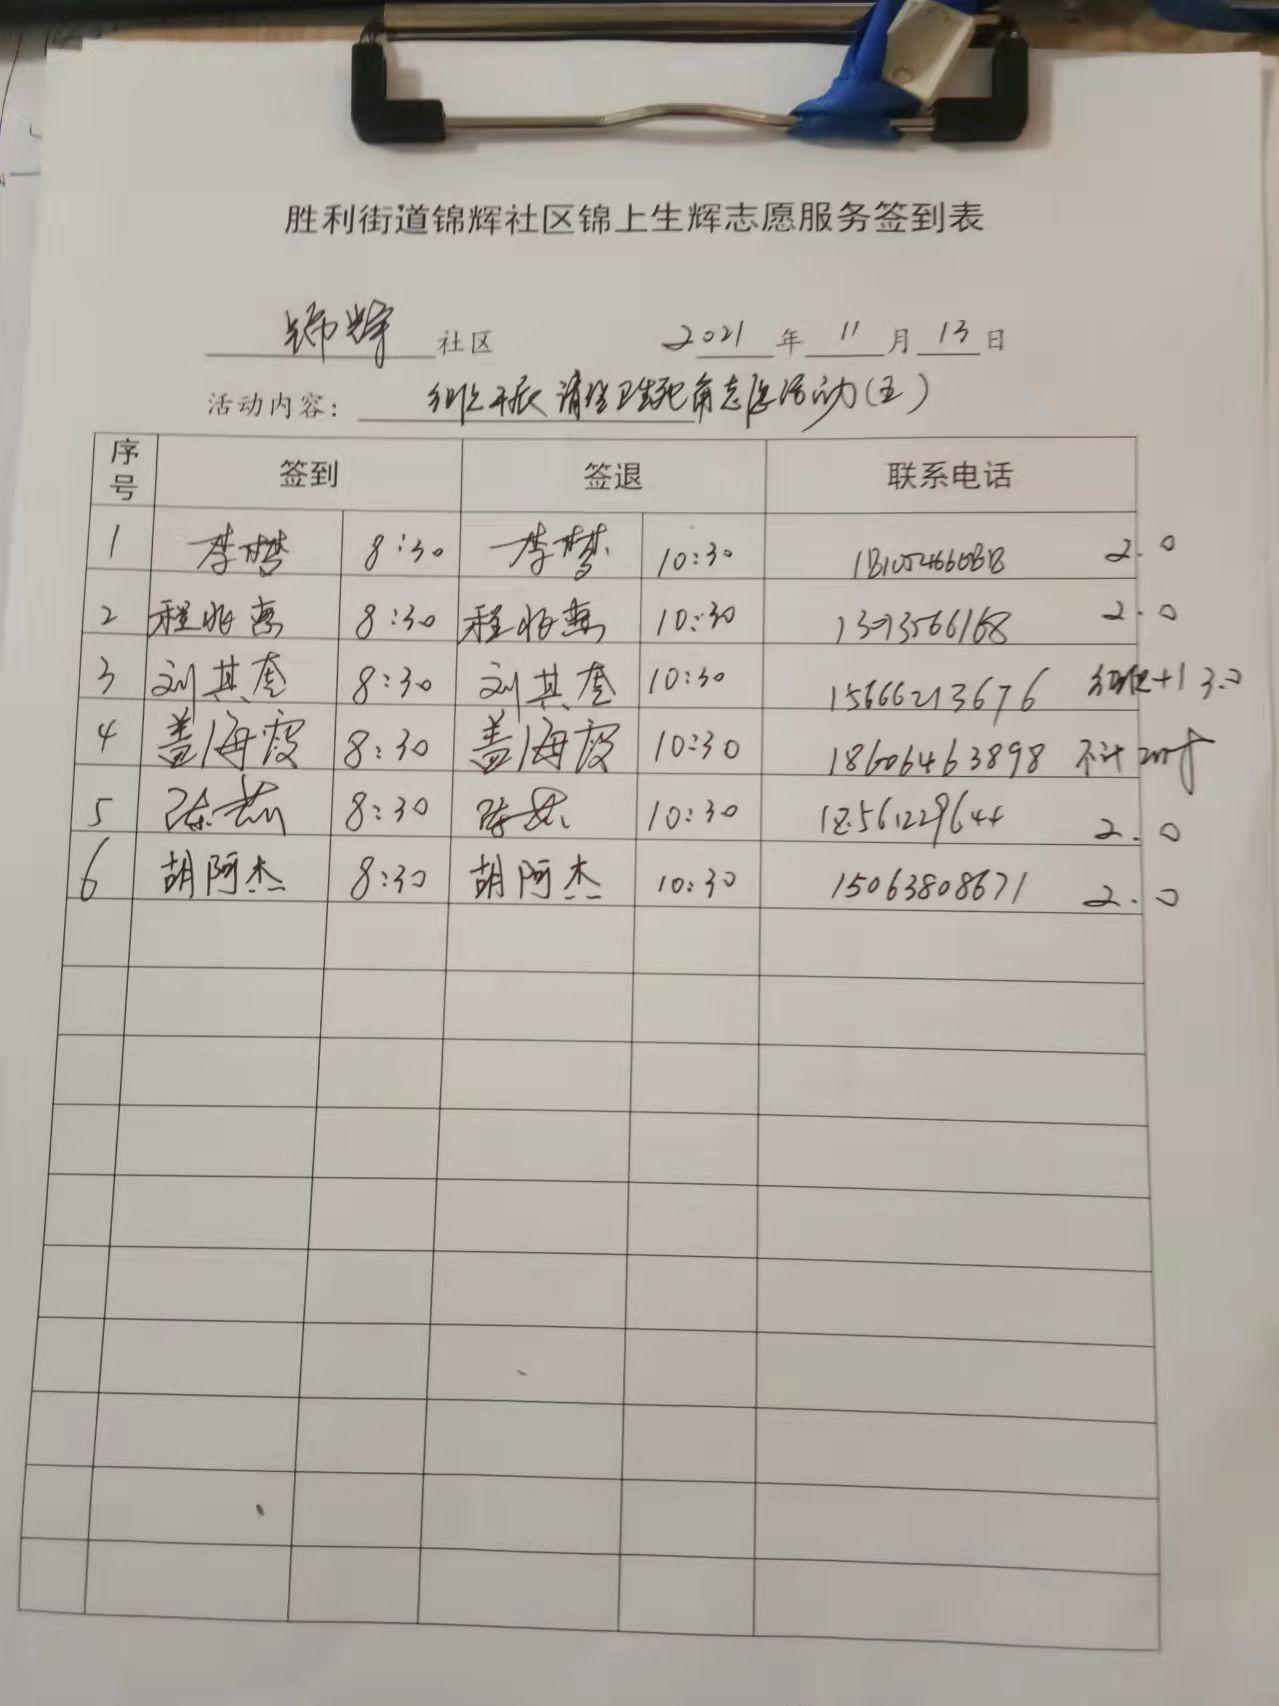 胜利街道锦辉社区锦上生辉志愿服务签到表
锦辉 社区 2021 年 11 月 13 日
活动内容: 组织开展清理卫生死角志愿活动(五)
序号 签到 签退 联系电话
1 李梦 8:30 李梦 10:30 2.0
2 程兆惠 8:30 程兆惠 10:30 2.0
3 刘其奎 8:30 刘其奎 10:30 15666213676 +1 3.0
4 盖海霞 8:30 盖海霞 10:30 18606463898 不计
5 陈 8:30 陈 10:30 18561229644 2.0
6 胡阿杰 8:30 胡阿杰 10:30 15063808671 2.0